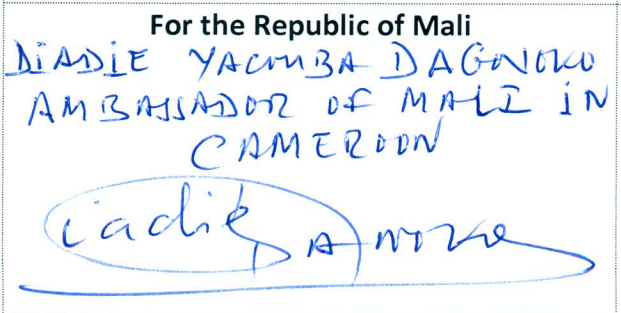 For the Republic of Mali
DIADIE YACOUBA DAGNOKO
AMBASSADOR OF MALI IN
CAMEROON